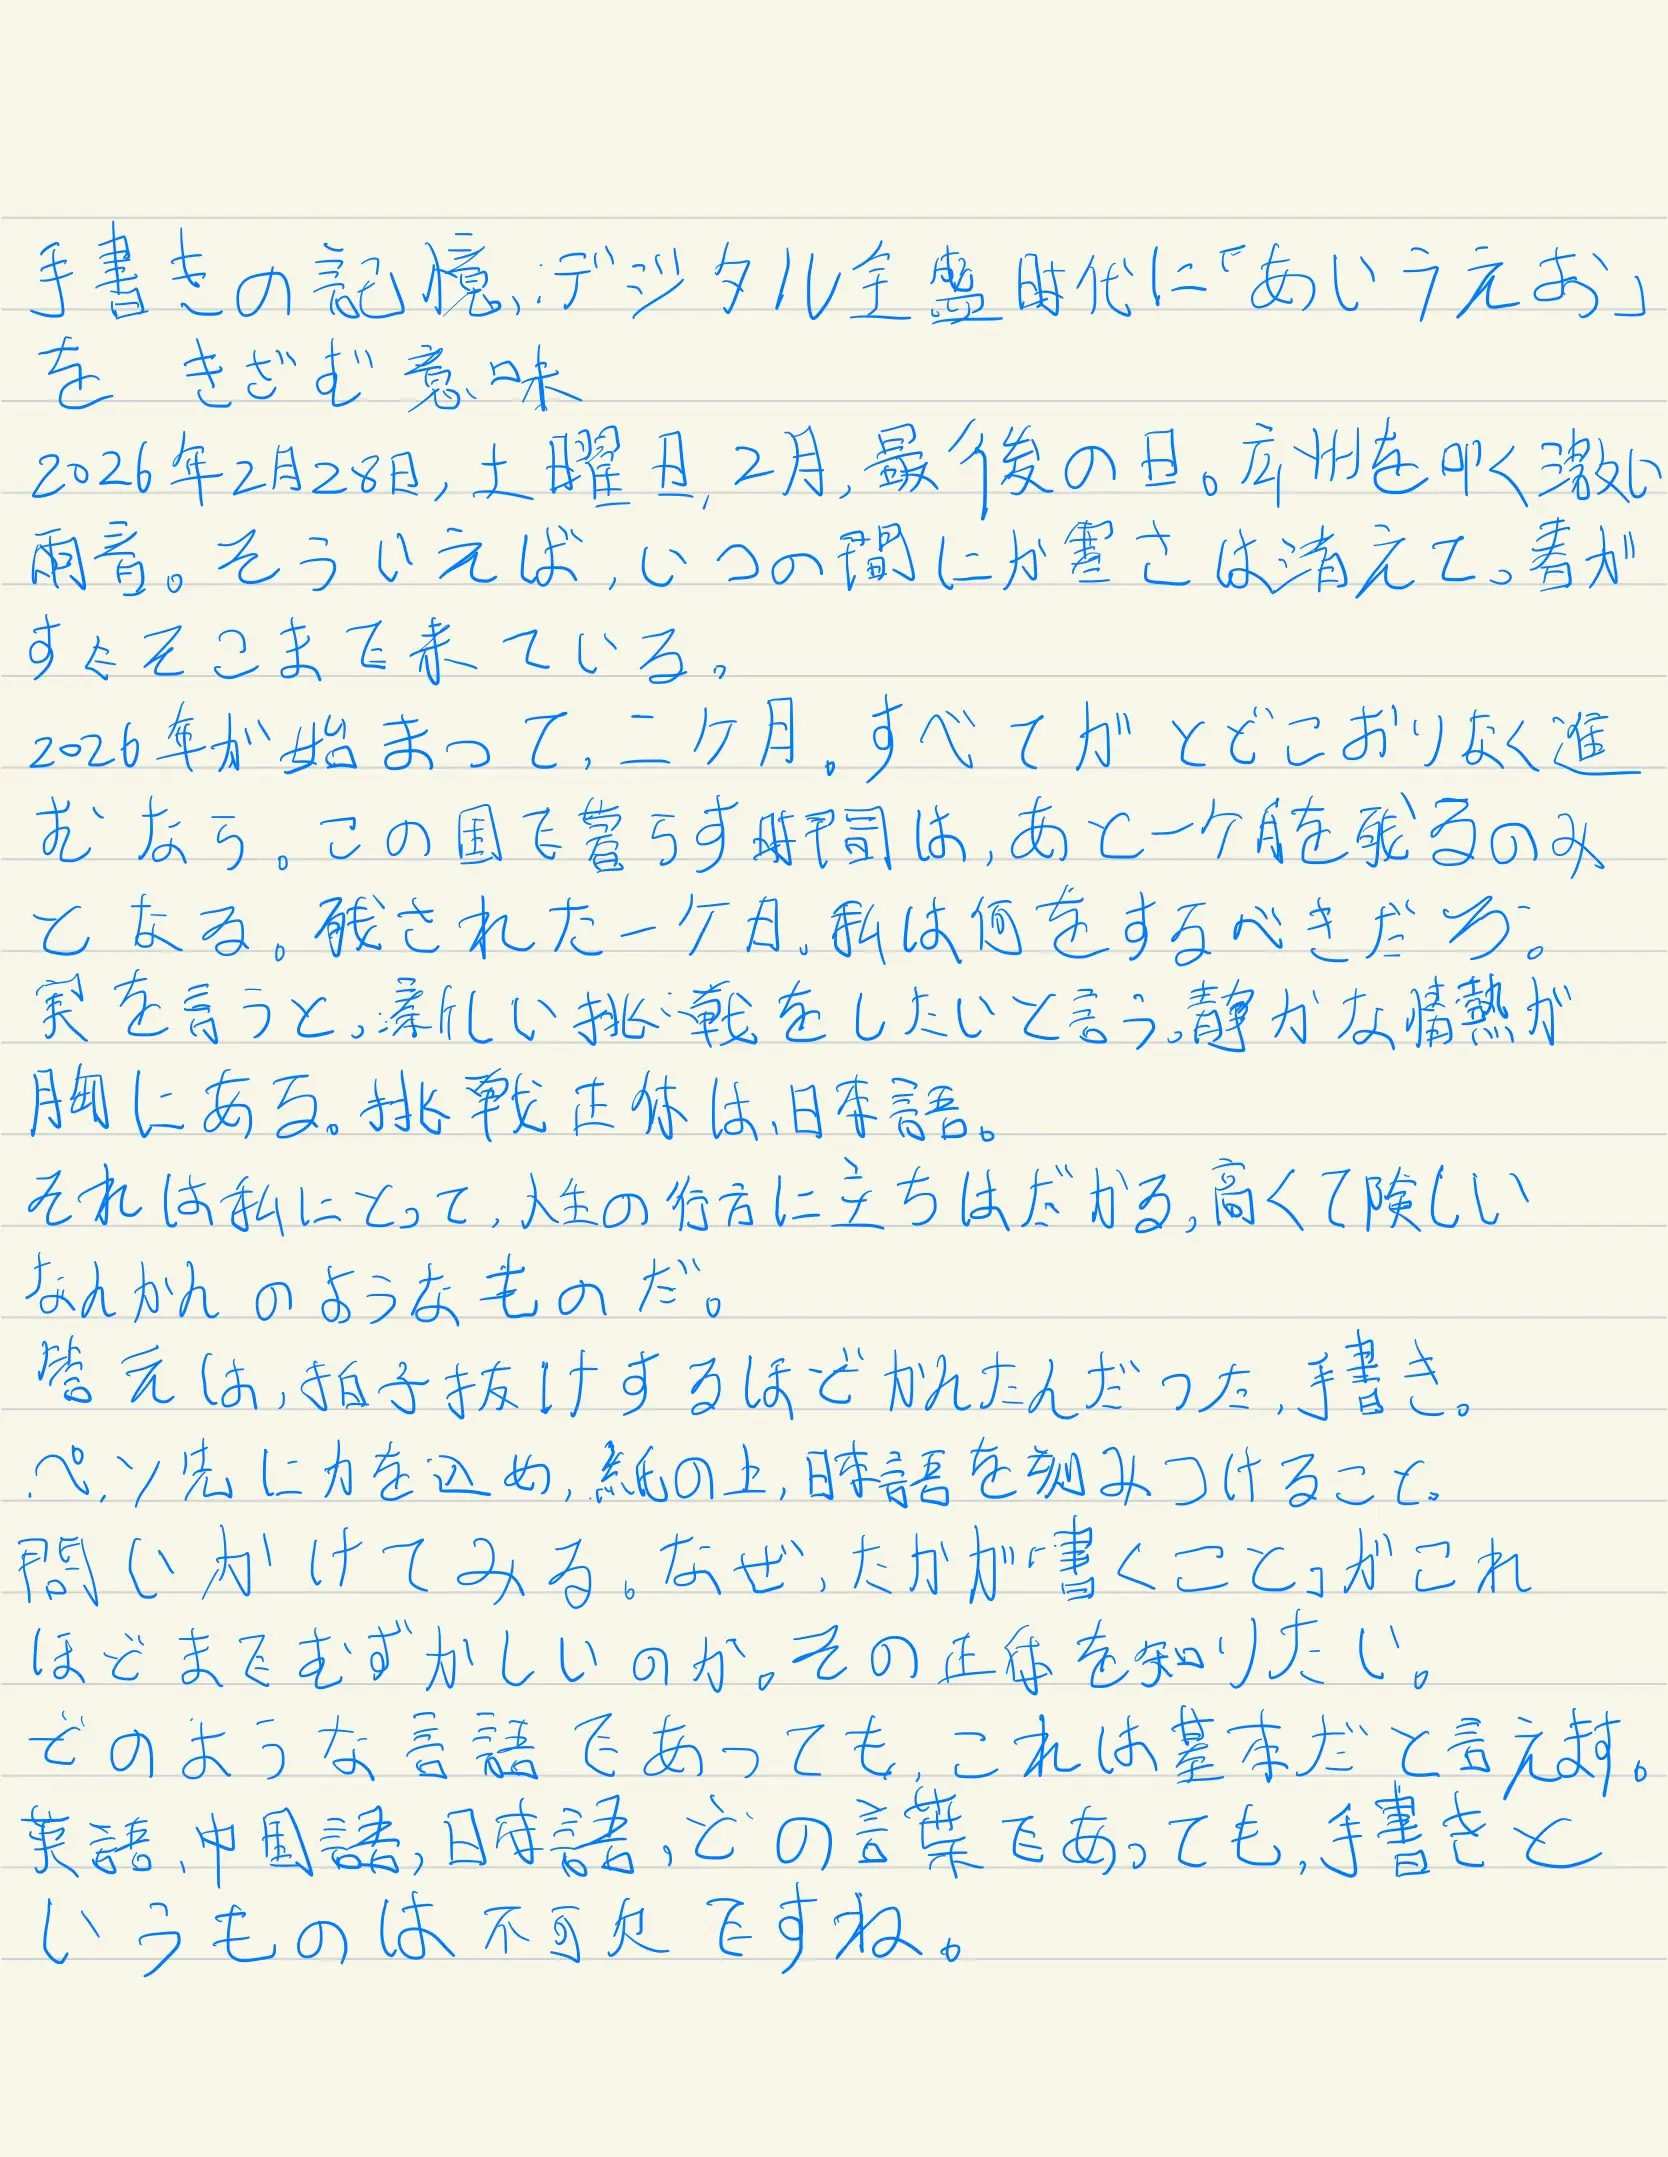 手書きの記憶、デジタル全盤時代に「あいうえお」
を きざむ意味
2026年2月28日,土曜日,2月,最後の日。広州を叩く激い
雨音。そういえば,いつの間にか寒さは消えて。春が
すぐそこまで来ている。
2026年が始まって,二ケ月。すべてがとどこおりなく進
むなら。この国で暮らす時間は,あと一ケ月を残るのみ
となる。残された一ケ月、私は何をするべきだろう。
実を言うと。新しい挑戦をしたいと言う。静かな情熱が
胸にある。挑戦正体は、日本語。
それは私にとって,人生の行方に立ちはだかる,高くて険しい
なんかんのようなものだ。
答えは,拍子抜けするほどかんたんだった,手書き。
ペン先に力を込め,紙の上,日本語を刻みつけること。
問いかけてみる。なぜ,たかが「書くこと」がこれ
ほどまでむずかしいのか。その正体を知りたい。
どのような言語であっても,これは基本だと言えます。
英語、中国語,日本語,どの言葉であっても,手書きと
いうものは不可欠ですね。